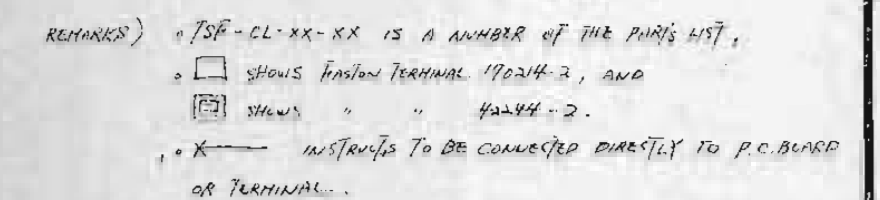 REMARKS) ∘ TSF-CL-XX-XX IS A NUMBER OF THE PARTS LIST,
∘ □ SHOWS FASTON TERMINAL 170214-2, AND
SHOWS " " 42244-2.
∘ X—— INSTRUCTS TO BE CONNECTED DIRESTLY TO P.C.BOARD
OR TERMINAL.